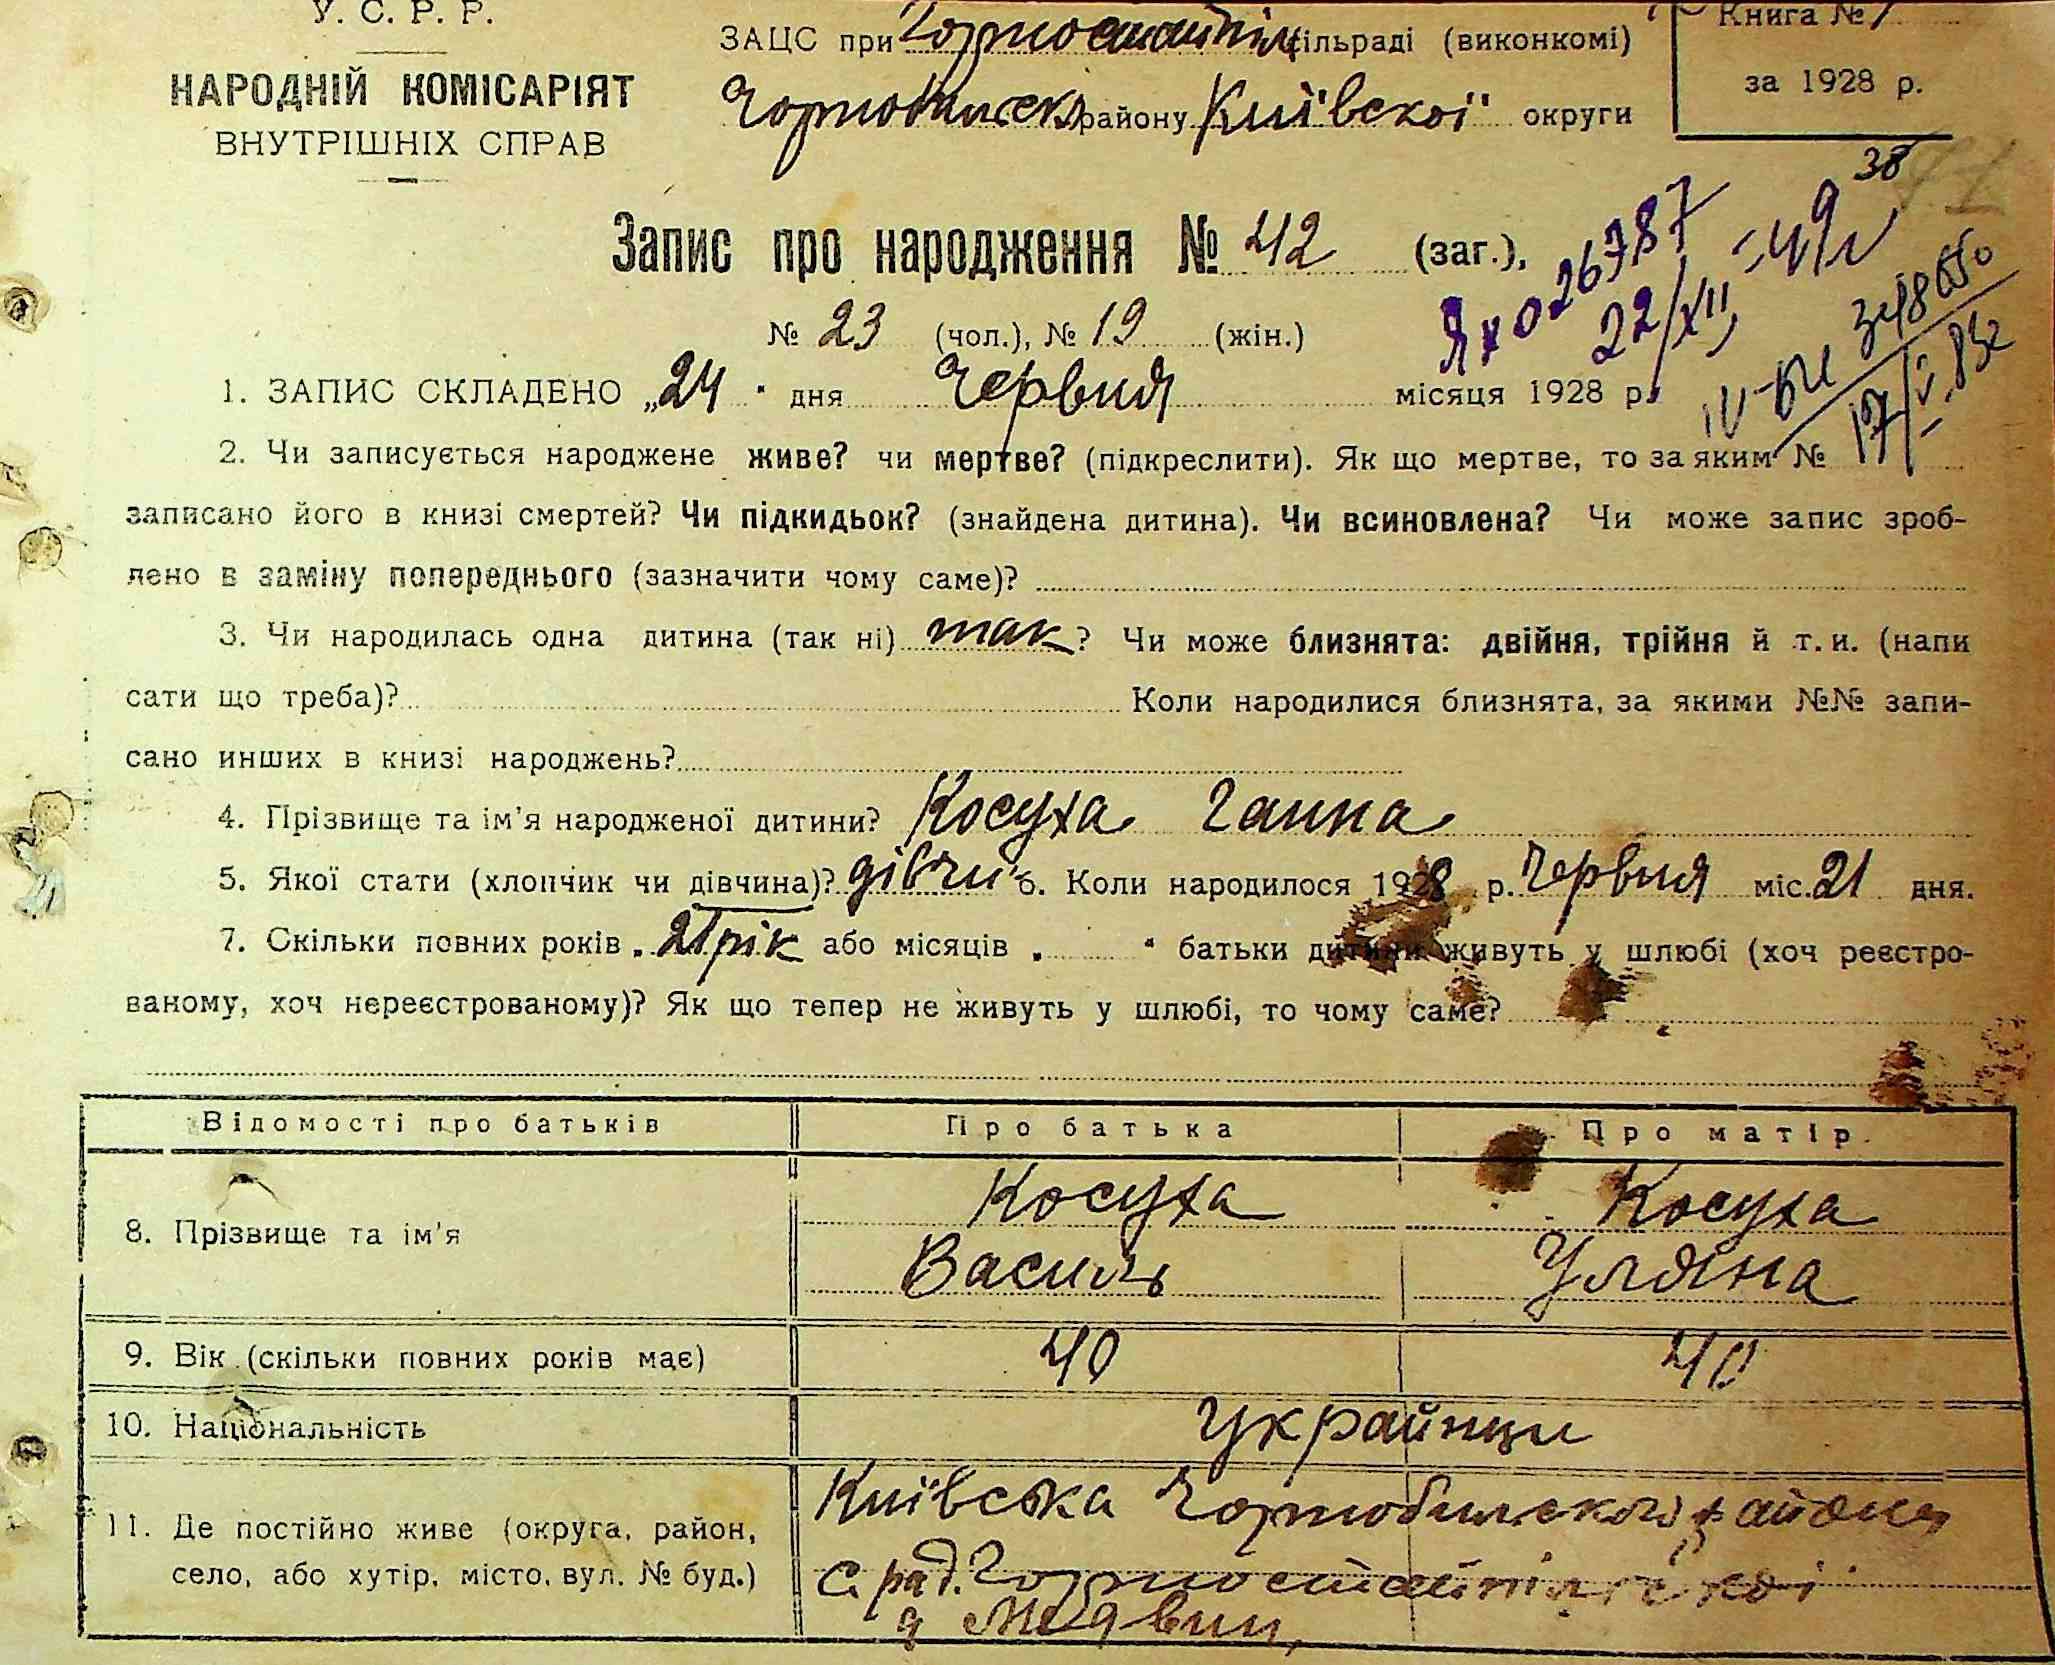 У. С. Р. Р.
НАРОДНІЙ КОМІСАРІЯТ
ВНУТРІШНІХ СПРАВ
ЗАЦС при Горностайпіл сільраді (виконкомі)
Чорнобильск району Київскої округи
Книга № 1
за 1928 р.
38
Запис про народження № 42 (заг.),
№ 23 (чол.), № 19 (жін.)
026787
22/XII-49 г
1. ЗАПИС СКЛАДЕНО „24" дня Червня місяця 1928 р.
2. Чи записується народжене живе? чи мертве? (підкреслити). Як що мертве, то за яким №
записано його в книзі смертей? Чи підкидьок? (знайдена дитина). Чи всиновлена? Чи може запис зроб-
лено в заміну попереднього (зазначити чому саме)?
3. Чи народилась одна дитина (так ні) так? Чи може близнята: двійня, трійня й т. и. (напи
сати що треба)? Коли народилися близнята, за якими №№ запи-
сано инших в книзі народжень?
4. Прізвище та ім'я народженої дитини? Косуха Ганна
5. Якої стати (хлопчик чи дівчина)? дівчи 6. Коли народилося 1928 р. Червня міс. 21 дня.
7. Скільки повних років „21 рік або місяців „ " батьки дитини живуть у шлюбі (хоч реєстро-
ваному, хоч нереєстрованому)? Як що тепер не живуть у шлюбі, то чому саме?
Відомості про батьків Про батька Про матір
8. Прізвище та ім'я Косуха Василь Косуха Уляна
9. Вік (скільки повних років має) 40 40
10. Національність Українци
11. Де постійно живе (округа, район,
село, або хутір, місто, вул. № буд.)
Київська Чорнобильского района
с. рад. Горностайпільскої
д Медвин,